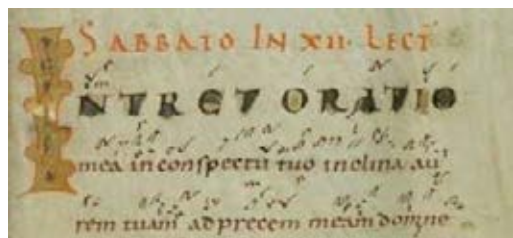 SABBATO IN XII. LECT
INTRET ORATIO
mea in conspectu tuo inclina au
rem tuam ad precem meam domine